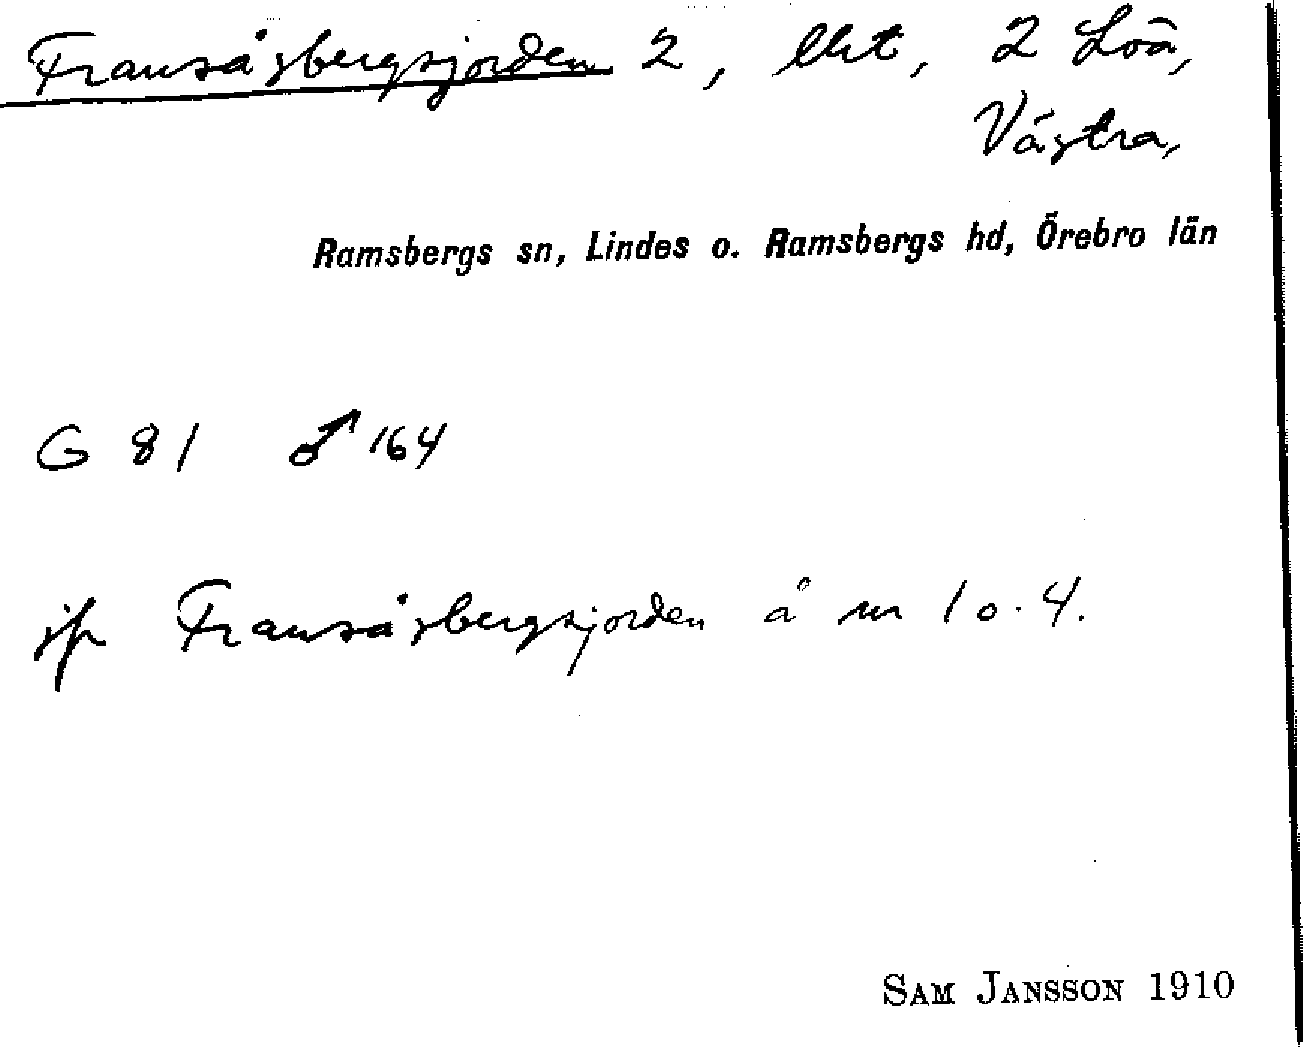 Fransåsbergsjorden 2, lht, 2 Löa,
Västra,
Ramsbergs sn, Lindes o. Ramsbergs hd, Örebro län
G 81 ♂ 164
jfr Fransåsbergsjorden å nr 1 o. 4.
SAM JANSSON 1910